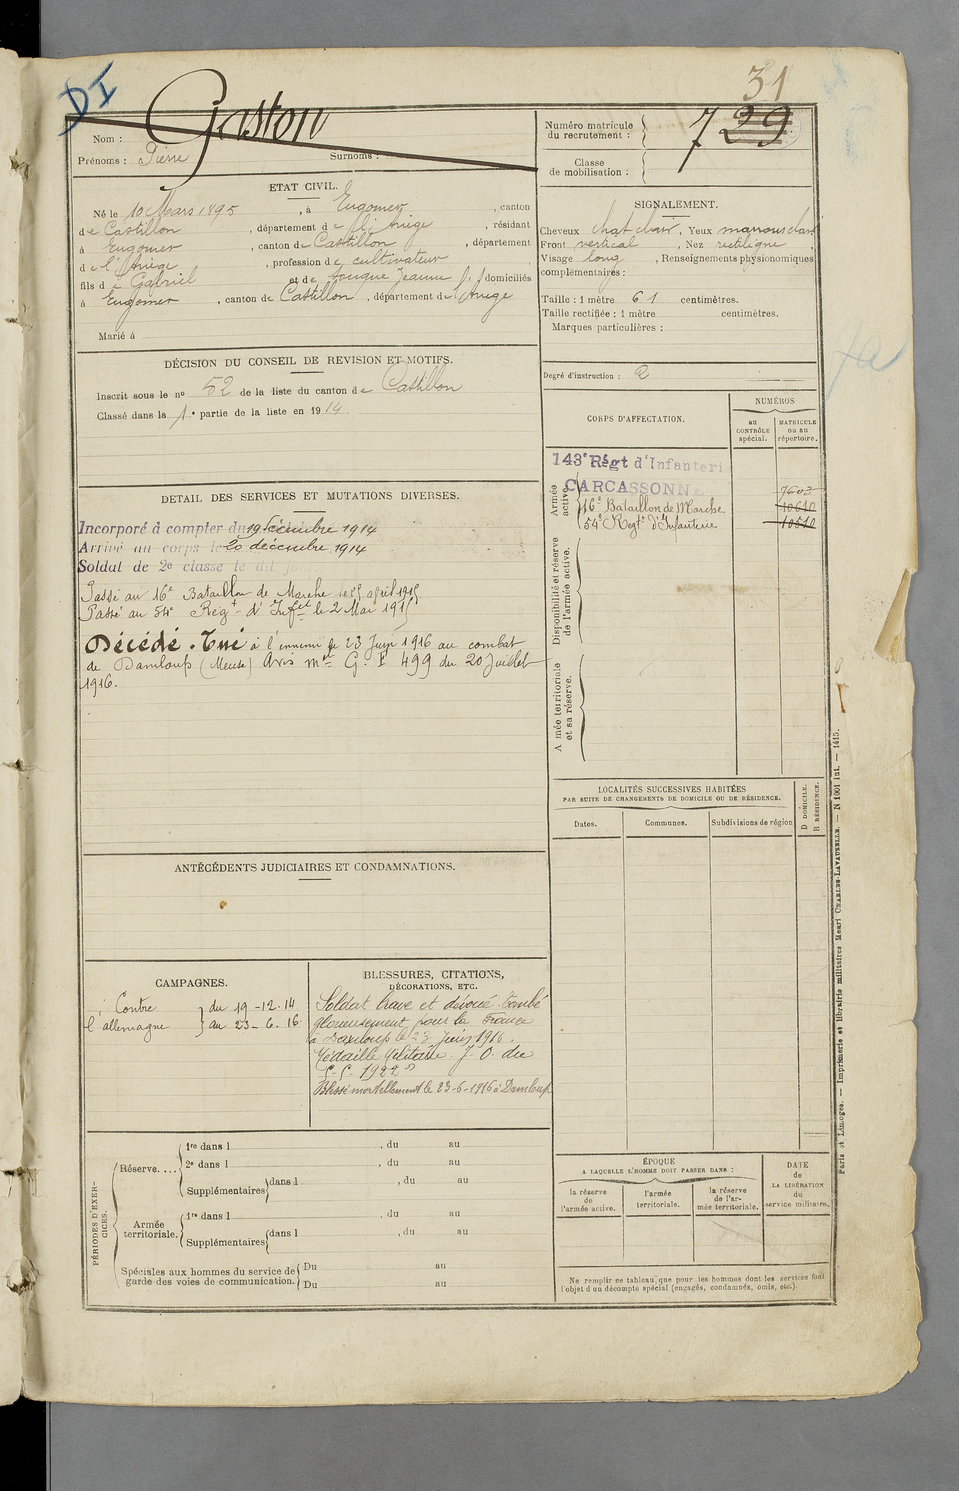 DI
31
Gaston
Nom :
Prénoms : Pierre Surnoms :
Numéro matricule du recrutement : 729
Classe de mobilisation :
ETAT CIVIL.
Né le 10 Mars 1895, à Engomer, canton
de Castillon, département de l'Ariège, résidant
à Engomer, canton de Castillon, département
de l'Ariège, profession de cultivateur
fils de Gabriel et de Jeanne domiciliés
à Engomer, canton de Castillon, département de l'Ariège
Marié à
SIGNALEMENT.
Cheveux chat clair, Yeux marrons clair
Front vertical, Nez rectiligne,
Visage long, Renseignements physionomiques
complémentaires :
Taille : 1 mètre 61 centimètres.
Taille rectifiée : 1 mètre centimètres.
Marques particulières :
Degré d'instruction : 2
DÉCISION DU CONSEIL DE REVISION ET MOTIFS.
Inscrit sous le no 52 de la liste du canton de Castillon
Classé dans la 1e partie de la liste en 1914.
CORPS D'AFFECTATION.
NUMÉROS
AU CONTRÔLE spécial.
MATRICULE OU AU répertoire.
Armée active.
143e Régt d'Infanteri
CARCASSONN
7603
16e Bataillon de Marche 10610
54e Regt d'Infanterie 10510
Disponibilité et réserve de l'armée active.
A mée territoriale et sa réserve.
DETAIL DES SERVICES ET MUTATIONS DIVERSES.
Incorporé à compter du 19 Décembre 1914
Arrivé au corps le 20 décembre 1914
Soldat de 2e classe le dit
Passé au 16e Bataillon de Marche le 15 avril 1915.
Passé au 54e Regt d'Infie le 2 Mai 1915
Décédé. Tué à l'ennemi le 23 Juin 1916 au combat
de Damloup (Meuse) Avis mel G. F 499 du 20 Juillet
1916.
LOCALITÉS SUCCESSIVES HABITÉES
PAR SUITE DE CHANGEMENTS DE DOMICILE OU DE RÉSIDENCE.
Dates.
Communes.
Subdivisions de région
D DOMICILE.
R RÉSIDENCE.
ANTÉCÉDENTS JUDICIAIRES ET CONDAMNATIONS.
CAMPAGNES.
Contre } du 19-12-14
l'allemagne } au 23-6-16
BLESSURES, CITATIONS,
DÉCORATIONS, ETC.
Soldat brave et dévoué. Tombé
glorieusement pour la France
à Damloup le 23 Juin 1916.
Médaille Militaire J. O. du
1922 "
Blessé mortellement le 23-6-1916 à Damloup
PÉRIODES D'EXERCICES.
Réserve....
1re dans l , du au
2e dans l , du au
Supplémentaires dans l , du au
Armée territoriale.
1re dans l , du au
Supplémentaires dans l , du au
Spéciales aux hommes du service de garde des voies de communication.
Du au
Du au
ÉPOQUE
A LAQUELLE L'HOMME DOIT PASSER DANS :
la réserve de l'armée active.
l'armée territoriale.
la réserve de l'armée territoriale.
DATE de LA LIBÉRATION du service militaire.
Ne remplir ce tableau que pour les hommes dont les services font
l'objet d'un décompte spécial (engagés, condamnés, omis, etc.).
Paris et Limoges. — Imprimerie et librairie militaires Henri CHARLES-LAVAUZELLE. — N 1001 int. — 1415.